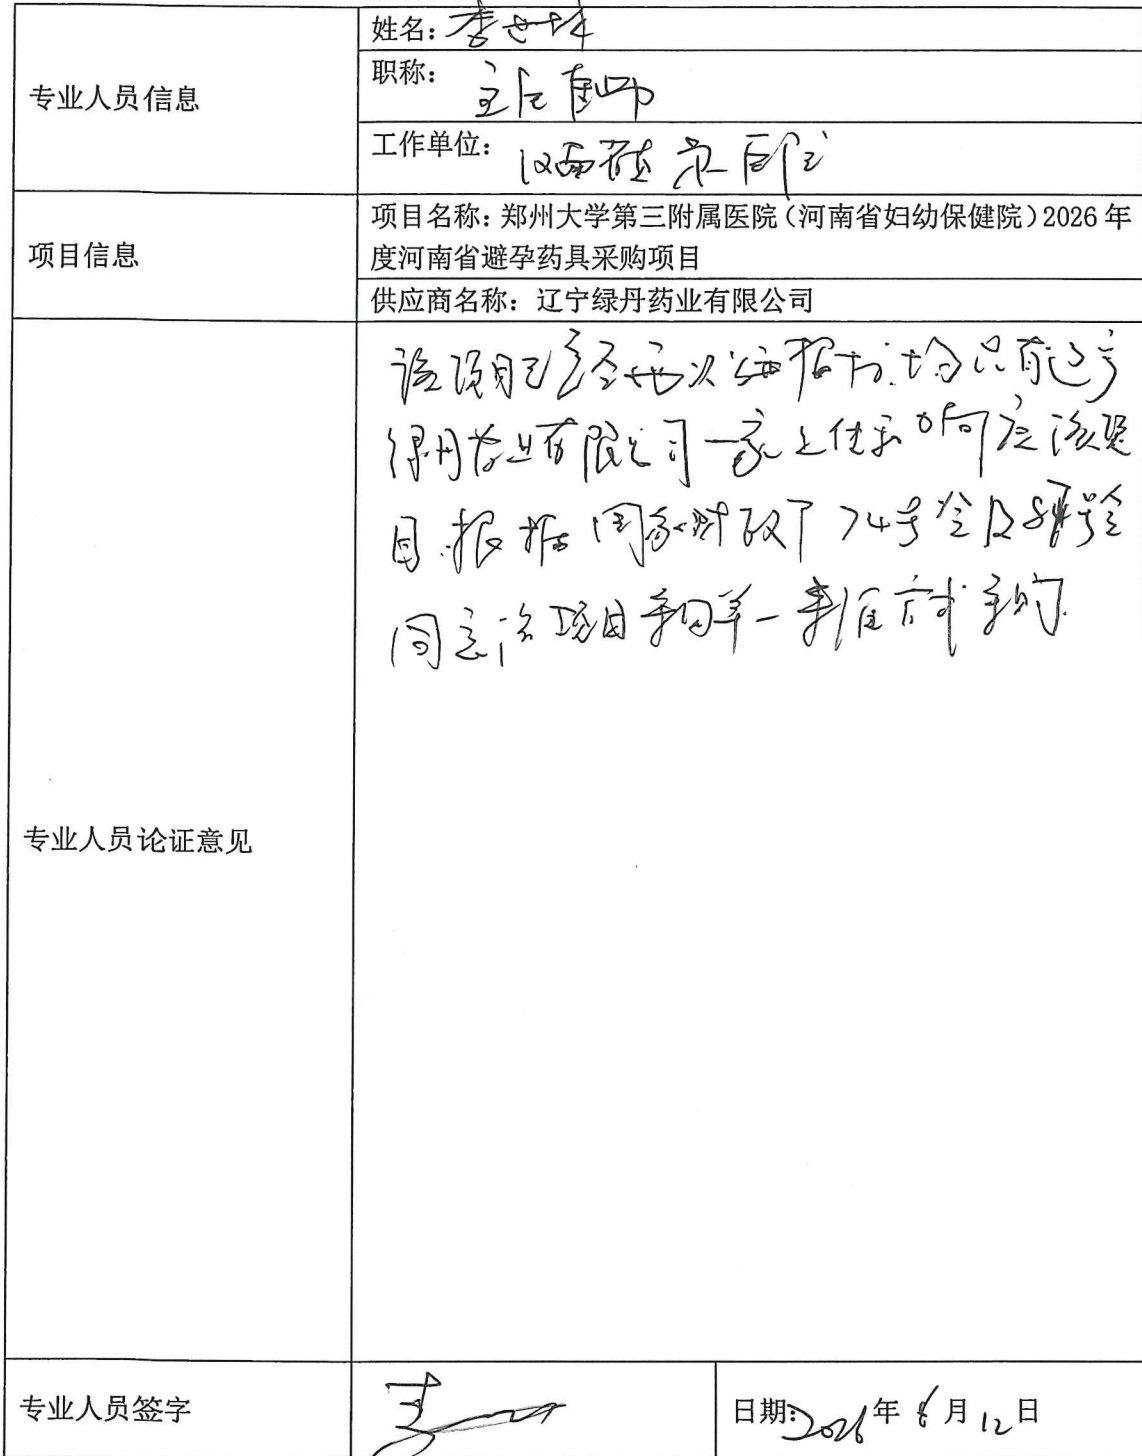 专业人员信息
姓名：李世林
职称：主任药师
工作单位：
项目信息
项目名称：郑州大学第三附属医院（河南省妇幼保健院）2026年
度河南省避孕药具采购项目
供应商名称：辽宁绿丹药业有限公司
专业人员论证意见
该项目已经两次公开招标，均只有辽宁
绿丹药业有限公司一家 响应该项
目，根据国家财政部74号令及 号令
同意该项目采用单一来源方式采购
专业人员签字
日期：2026年 月12日